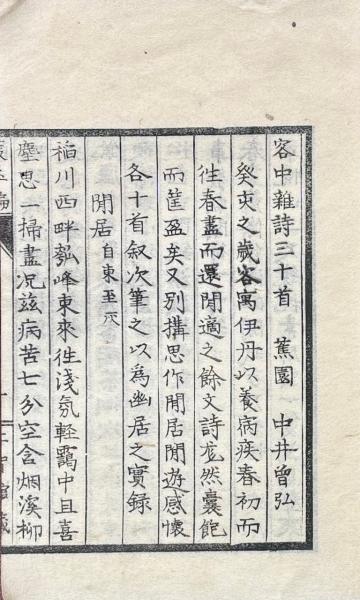 客中雜詩三十首　蕉園　中井曾弘
癸亥之歲客寓伊丹以養病疾春初而
徃春盡而還閒適之餘文詩尨然囊飽
而筐盈矣又別搆思作閒居閒遊感懷
各十首叙次筆之以為幽居之實録
閒居自東至灰
稲川西畔瓠峰東來徃淺氛輕靄中且喜
塵思一掃盡况兹病苦七分空含烟溪柳